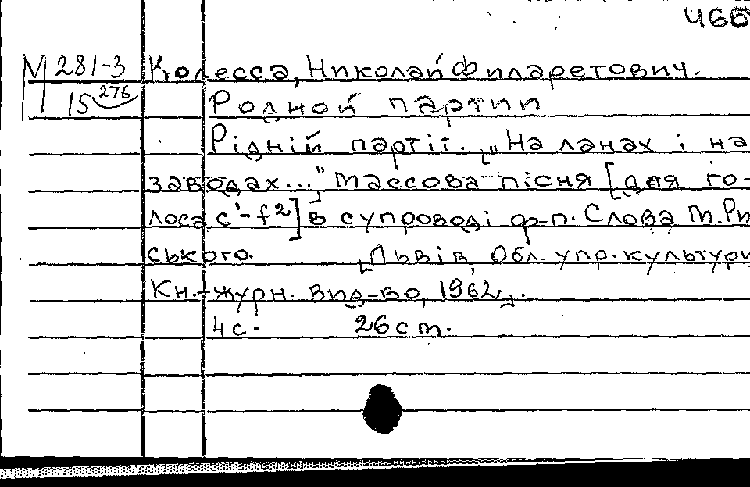 466
М 281-3 Колесса, Николай Филаретович.
15 276 Родной партии
Рідній партії. „На ланах і на
заводах...", Массова пісня [для го-
лоса c¹-f²] в супроводі ф-п. Слова М. Ри
ського. [Львів, Обл. упр. культури
Кн.-журн. вид-во, 1962].
4 с. 26 см.